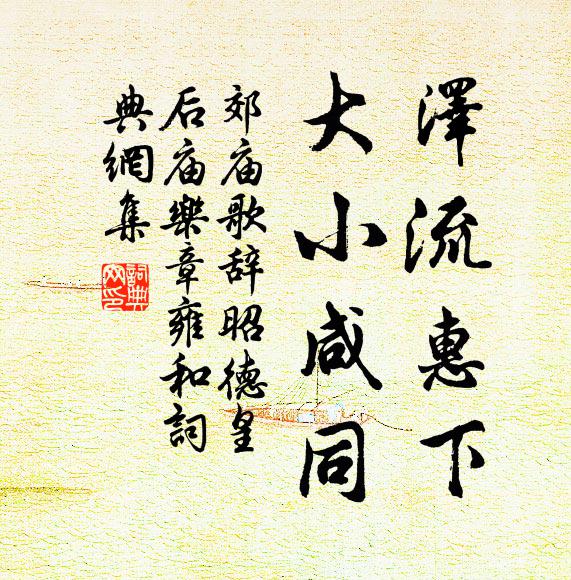 澤流惠下
大小咸同
郊庙歌辞昭德皇
后庙樂章雍和詞
典網集
詞典网印